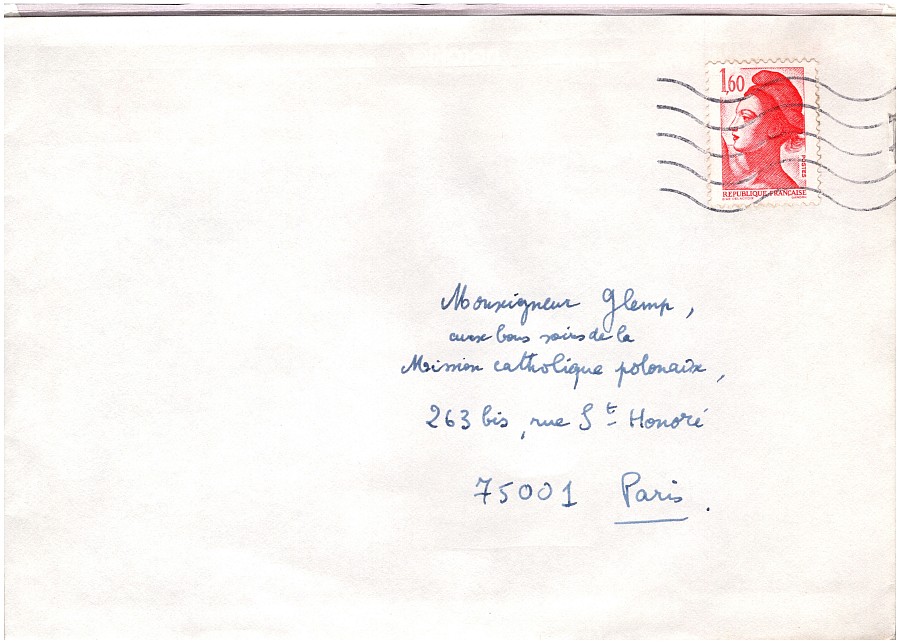 1,60
POSTES
REPUBLIQUE FRANÇAISE
Monseigneur Glemp,
aux bons soins de la
Mission catholique polonaise,
263 bis, rue St Honoré
75001 Paris.